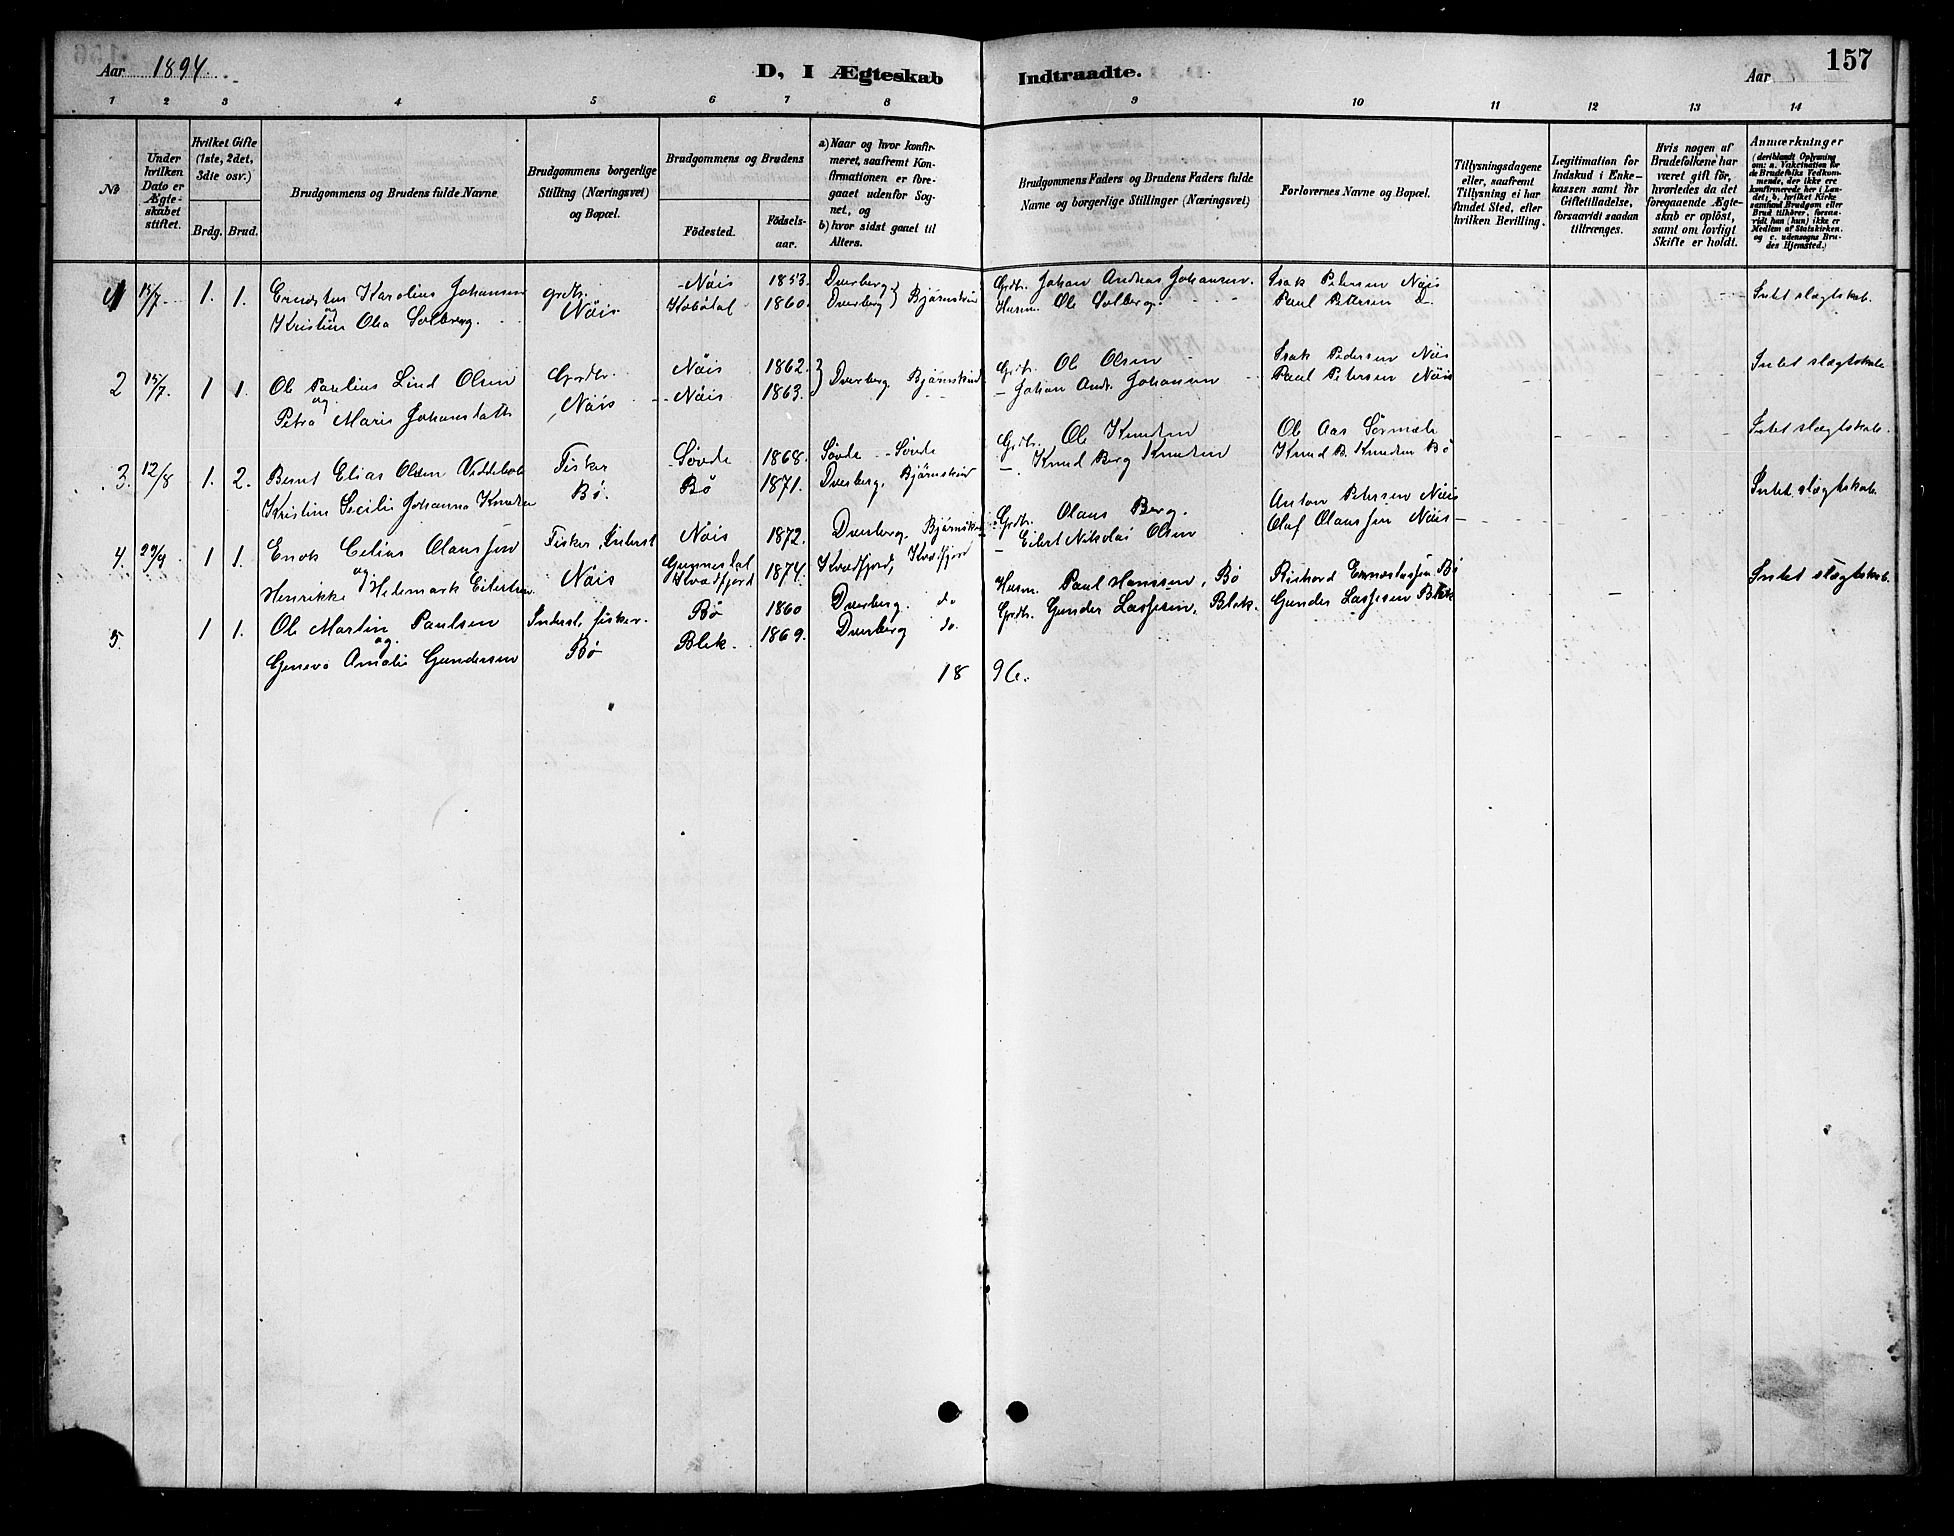 Aar 1894.
D, I Ægteskab Indtraadte.
Aar
157
1 2 3 4 5 6 7 8 9 10 11 12 13 14
No
Under hvilken Dato er Ægteskabet stiftet.
Hvilket Gifte (1ste, 2det, 3die osv.)
Brdg. Brud.
Brudgommens og Brudens fulde Navne.
Brudgommens borgerlige Stilling (Næringsvei) og Bopæl.
Brudgommens og Brudens
Födested.
Födselsaar.
a) Naar og hvor konfirmeret, saafremt Konfirmationen er foregaaet udenfor Sognet, og
b) hvor sidst gaaet til Alters.
Brudgommens Faders og Brudens Faders fulde Navne og borgerlige Stillinger (Næringsvei)
Forlovernes Navne og Bopæl.
Tillysningsdagene eller, saafremt Tillysning ei har fundet Sted, efter hvilken Bevilling.
Legitimation for Indskud i Enkekassen samt for Giftetilladelse, forsaavidt saadan tiltrænges.
Hvis nogen af Brudefolkene har været gift för, hvorledes da det foregaaende Ægteskab er oplöst, samt om lovligt Skifte er holdt.
Anmærkninger
(deriblandt Oplysning om: a. Vakcination for de Brudefolks Vedkommende, der ikke ere konfirmerede her i Landet; b. hvilket Kirkesamfund Brudgom eller Brud tilhörer, forsaavidt han (hun) ikke er Medlem af Statskirken, og c. udensogns Brudes Hjemsted.)
1 15/7 1. 1. Erndstus Karolius Johansen Grdbr. Nöis 1853. Dverberg Grdbr. Johan Andreas Johansen. Isak Petersen Nöis Intet slægtskab.
og Kristine Olia Solberg. Nöis. Kobödal 1860. Dverberg Bjørnskind Husm. Ole Solberg. Paul Petersen
2 15/7. 1 1. Ole Paulius Lind Olsen Grdbr. Nöis 1862. Dverberg Bjørnskind Grdbr. Ole Olsen Isak Pedersen Nöis Intet slægtskab
og Petra Marie Johansdatter Nöis Nöis 1863. — Johan Andr. Johansen Paul Petersen Nöis
3. 12/8 1. 2. Bernt Elias Olsen Fisker Søvde 1868. Søvde Søvde Grdbr. Ole Knudsen Ole Aas Sörmæle Intet slægtskab.
Kristine Secilie Johanna Knudsen Bø. Bø 1871. Dverberg, Bjørnskind —. Knud Berg Knudsen Knud B. Knudsen Bø
4. 29/9 1 1. Enok Celius Olaussen Fisker, Inderst Nöis 1872. Dverberg, Bjørnskind Grdbr. Olaus Berg. Anton Petersen Nöis Intet slægtskab.
og Henrikke Hedemark Eilertsen Nöis Gunnesdal Kvædfjord 1874. Kvædfjord, Kvædfjord — Eilert Nikolai Olsen Olaf Olaussen Nöis
5. 1 1. Ole Martin Paulsen Inderst, fisker. Bø 1860 Dverberg. do Husm. Paul Hanssen, Bø Rikard Ernestussen Bø Intet slægtskab.
og Geneva Amalie Gundersen Bø Blek. 1869. Dverberg do. Grdbr. Gunder Lassesen, Blek. Gunder Lassesen Blek
1896.